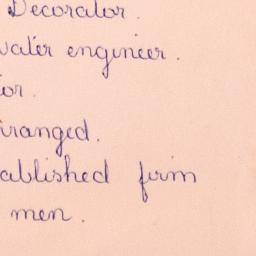 Decorator.
water engineer.
or.
rranged.
ablished firm
men.